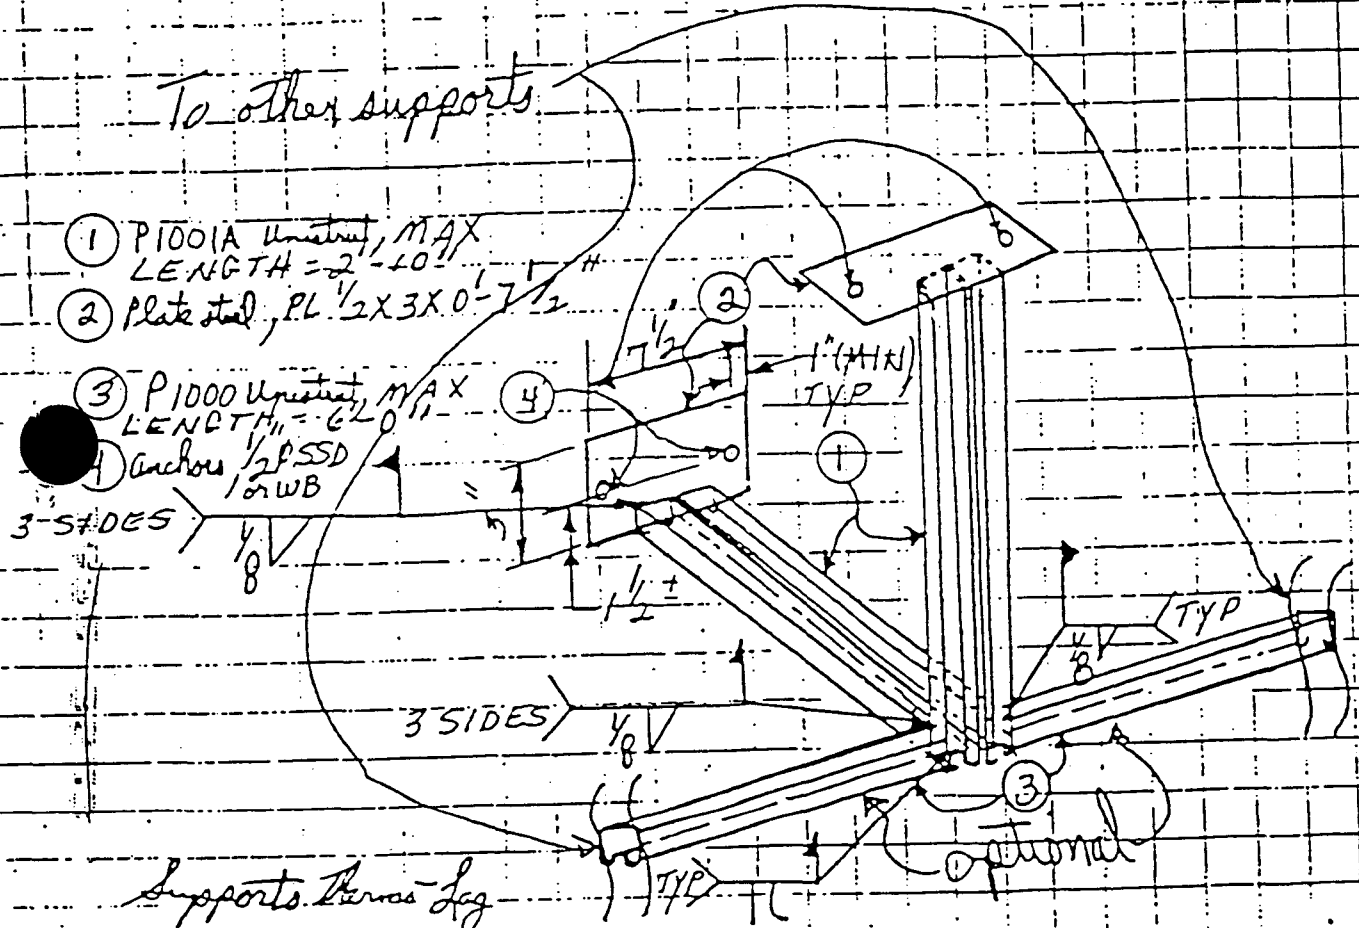 To other supports
1 P1001A Unistrut, MAX
LENGTH = 2'-10"
2 Plate steel, PL 1/2 X 3 X 0'-7 1/2"
3 P1000 Unistrut, MAX
LENGTH = 6'-0"
4 anchors 1/2"
or WB
3-SIDES
1/8
2
7 1/2"
1" (MIN)
TYP
4
1
3"
1 1/2 ±
TYP
1/8
3 SIDES
1/8
3
optional
TYP
Supports Thermo-Lag